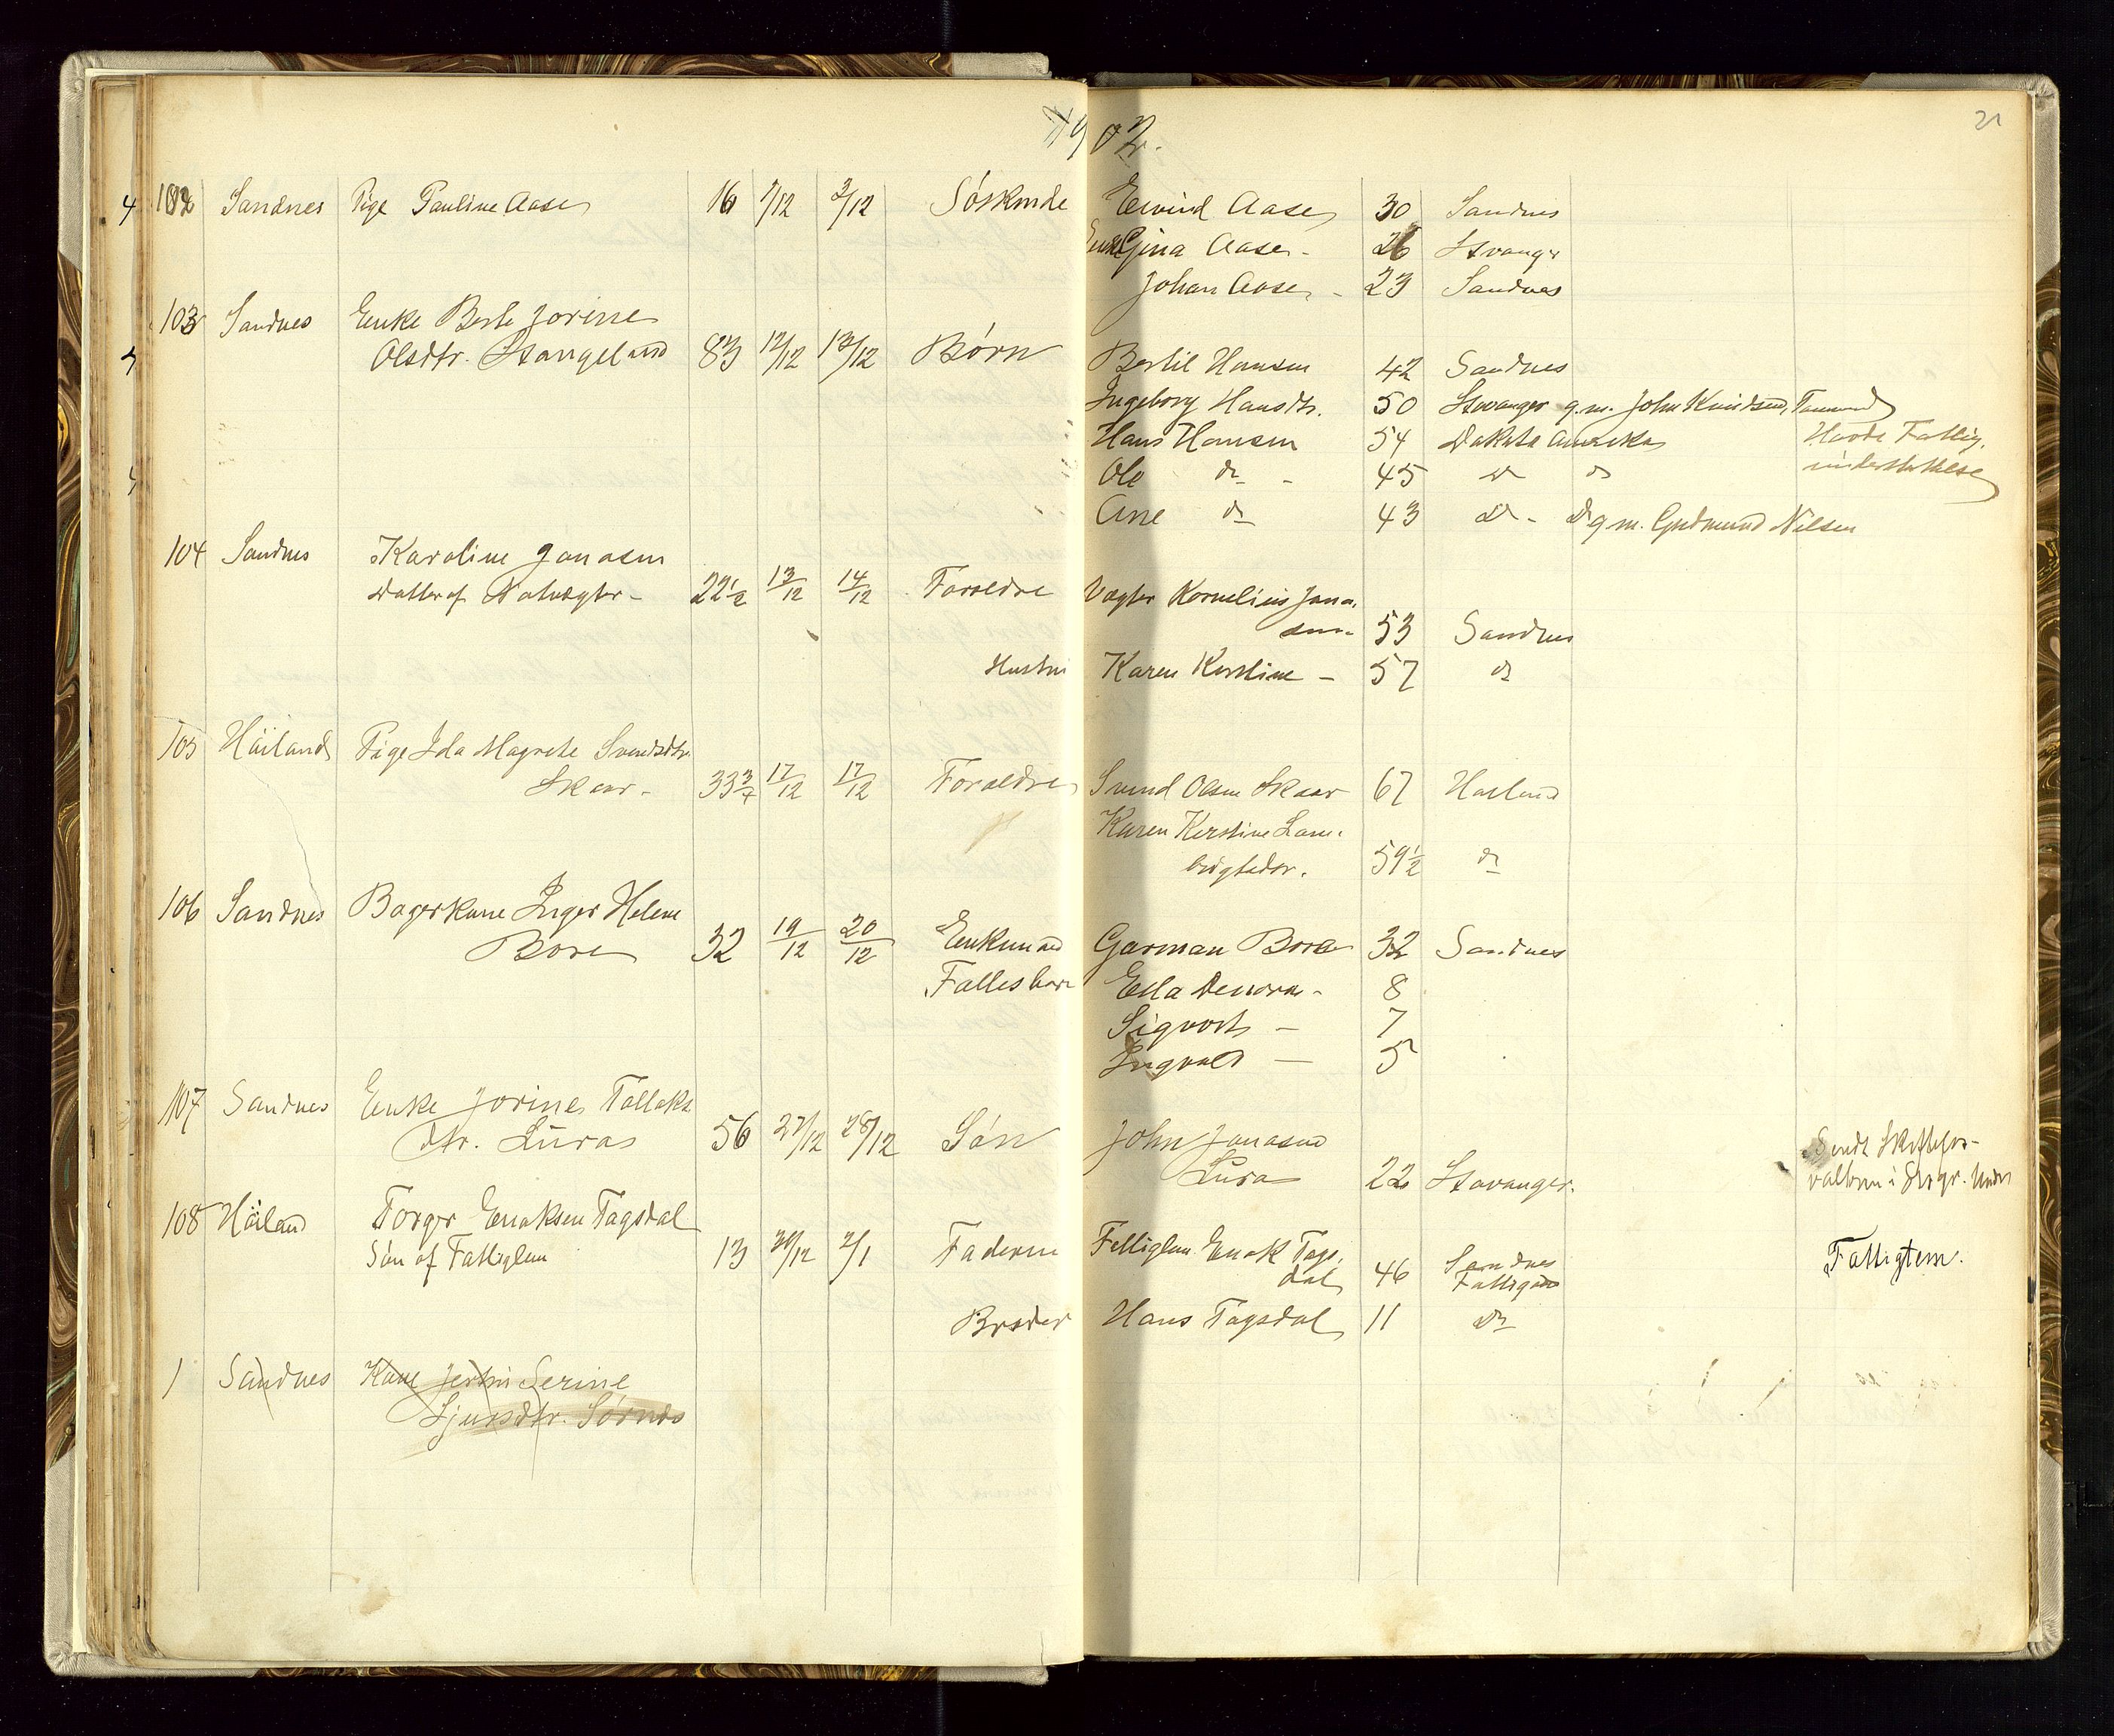 1902.
21
4 102 Sandnes Pige Pauline Aase 16 1/12 3/12 Söskende Eivind Aase 30 Sandnes
Enke Gina Aase - 26 Stvanger
Johan Aase - 23 Sandnes
103 Sandnes Enke Berte Jorine
Olsdtr. Stangeland 83 12/12 13/12 Börn Bertil Hansen 42 Sandnes
Ingeborg Hansdtr. 50 Stvanger g.m. John Knudsen,
Hans Hansen 54 Dakota Amerika Havde Fattig.
Ole do - 45 do do understøttelse
Ane do 43 do - do g m. Gudmund Nilsen
104 Sandnes Karoline Jonasen
Datter af Natvægter - 22½ 13/12 14/12 Forældre Vægter Kornelius Jona.
sen - 53 Sandnes
Hustru Karen Kirstine - 57 do
105 Håiland Pige Ida Magrete Svendsdtr.
Skaar - 33¾ 17/12 17/12 Forældre Svend Olsen Skaar 67 Høiland
Karen Kerstine Lam.
brigtsdtr. 59½ do
106 Sandnes Bagerkone Inger Helene
Bore 32 19/12 20/12 Enkemand Garman Bore 32 Sandnes
Fællesbarn Ella - 8
Sigvart - 7
Ingvald - 5
107 Sandnes Enke Jorine Tollaks
dtr. Luras 56 27/12 28/12 Sön John Jonasen
Lura 22 Stavanger.
Sendt Skiftefor-
valtren i Stvgr.
108 Håiland Torger Enoksen Tagsdal
Sön af Fattiglem 13 30/12 2/1 Faderen Fattiglem Enok Tags.
dal 46 Sandnes
Fattiggård
Fattiglem.
Broder Hans Tagsdal 11 do
1 Sandnes Kone Serine
Sjursdtr. Sørnes